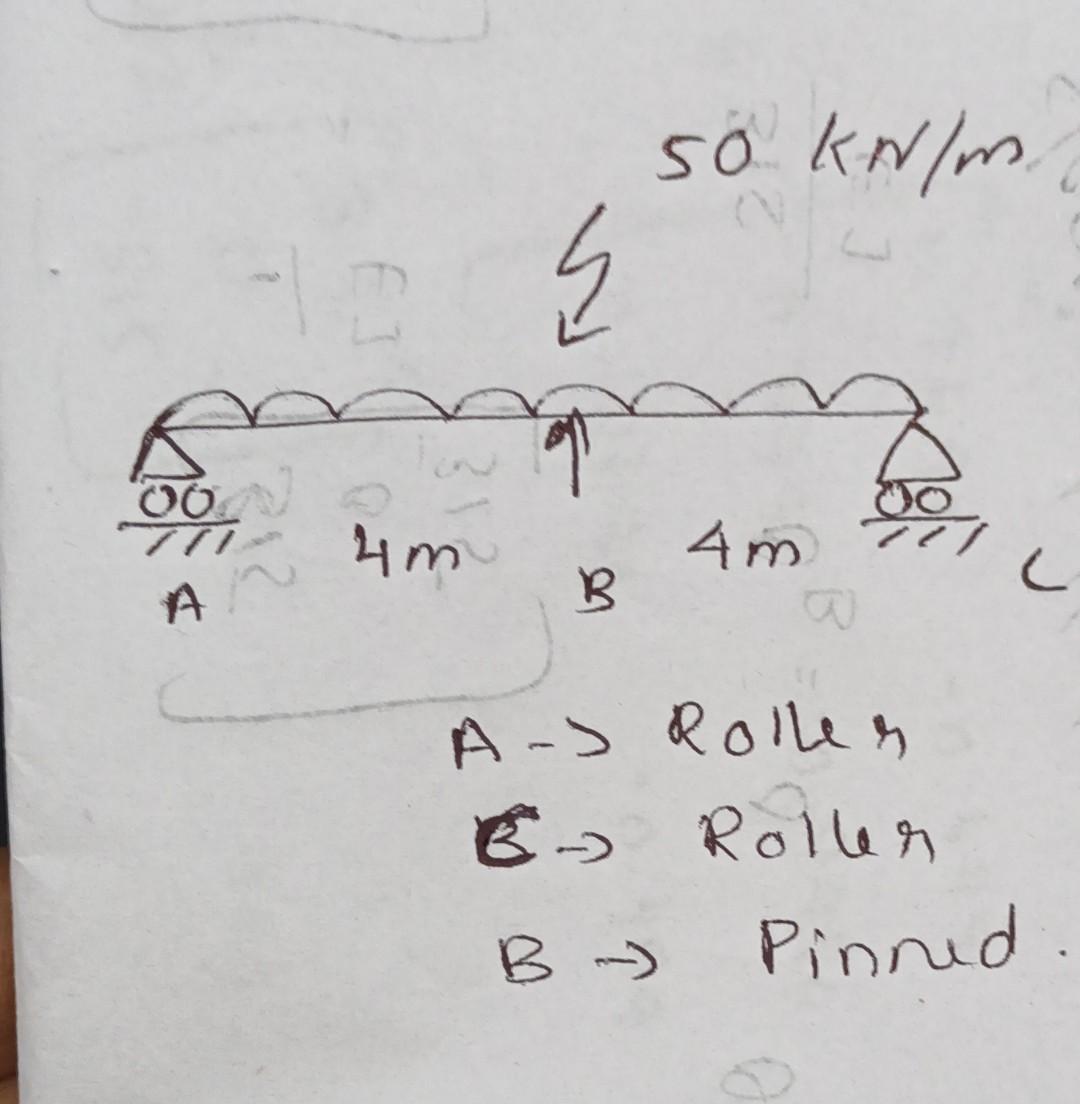 50 kN/m
4m 4m
A B C
A -> Roller
C -> Roller
B -> Pinned.